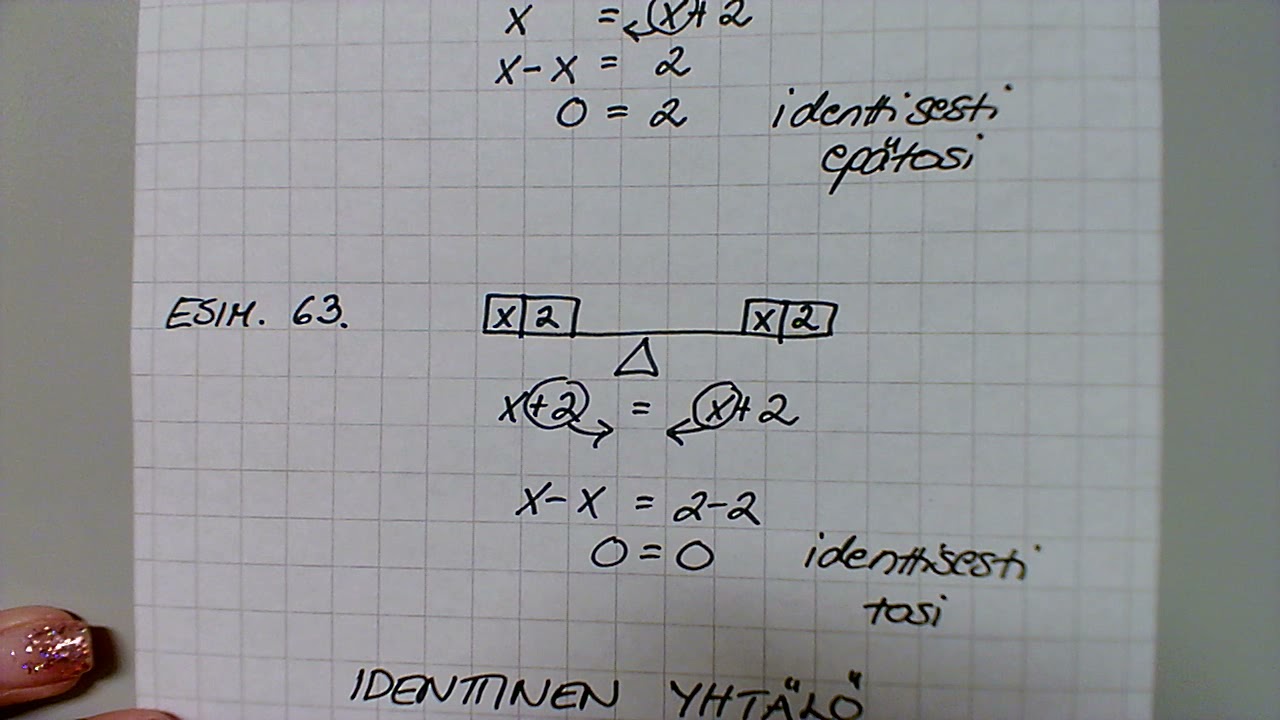 x = x+2
x-x = 2
0 = 2 identtisesti
epätosi
ESIM. 63. x 2 x 2
x+2 = x+2
x-x = 2-2
0 = 0 identtisesti
tosi
IDENTTINEN YHTÄLÖ